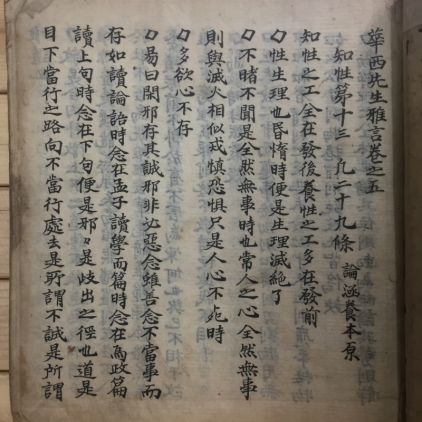 華西先生雅言卷之五
知性第十三 凡二十九條 論涵養本原
知性之工全在發後養性之工多在發前
性生理也昏惰時便是生理滅絶了
不睹不聞是全然無事時也常人之心全然無事
則與滅火相似戒慎恐惧只是人心不死時
多欲心不存
易曰閑邪存其誠邪非必惡念雖善念不當事而
存如讀論語時念在孟子讀學而篇時念在爲政篇
讀上句時念在下句便是邪邪是歧出之徑也道是
目下當行之路向不當行處去是所謂不誠是所謂